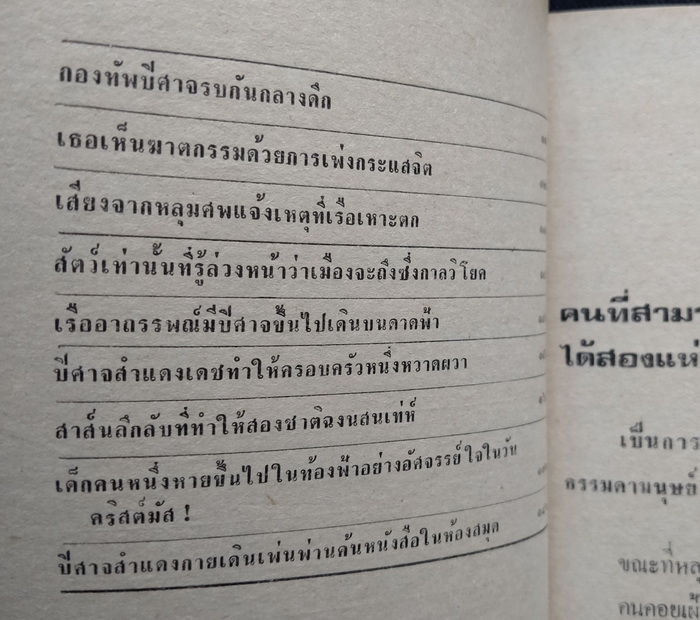 กองทัพปีศาจรบกันกลางดึก
เธอเห็นฆาตกรรมด้วยการเพ่งกระแสจิต
เสียงจากหลุมศพแจ้งเหตุที่เรือเหาะตก
สัตว์เท่านั้นที่รู้ล่วงหน้าว่าเมืองจะถึงซึ่งกาลวิโยค
เรืออาถรรพณ์มีปีศาจขึ้นไปเดินบนดาดฟ้า
ปีศาจสำแดงเดชทำให้ครอบครัวหนึ่งหวาดผวา
สาส์นลึกลับที่ทำให้สองชาติฉงนสนเท่ห์
เด็กคนหนึ่งหายขึ้นไปในท้องฟ้าอย่างอัศจรรย์ใจในวัน
คริสต์มัส !
ปีศาจสำแดงกายเดินเพ่นพ่านค้นหนังสือในห้องสมุด
คนที่สามา
ได้สองแห่
เป็นการ
กรรมดามนุษย์
ขณะที่หลุ
คนคอยเฝ้